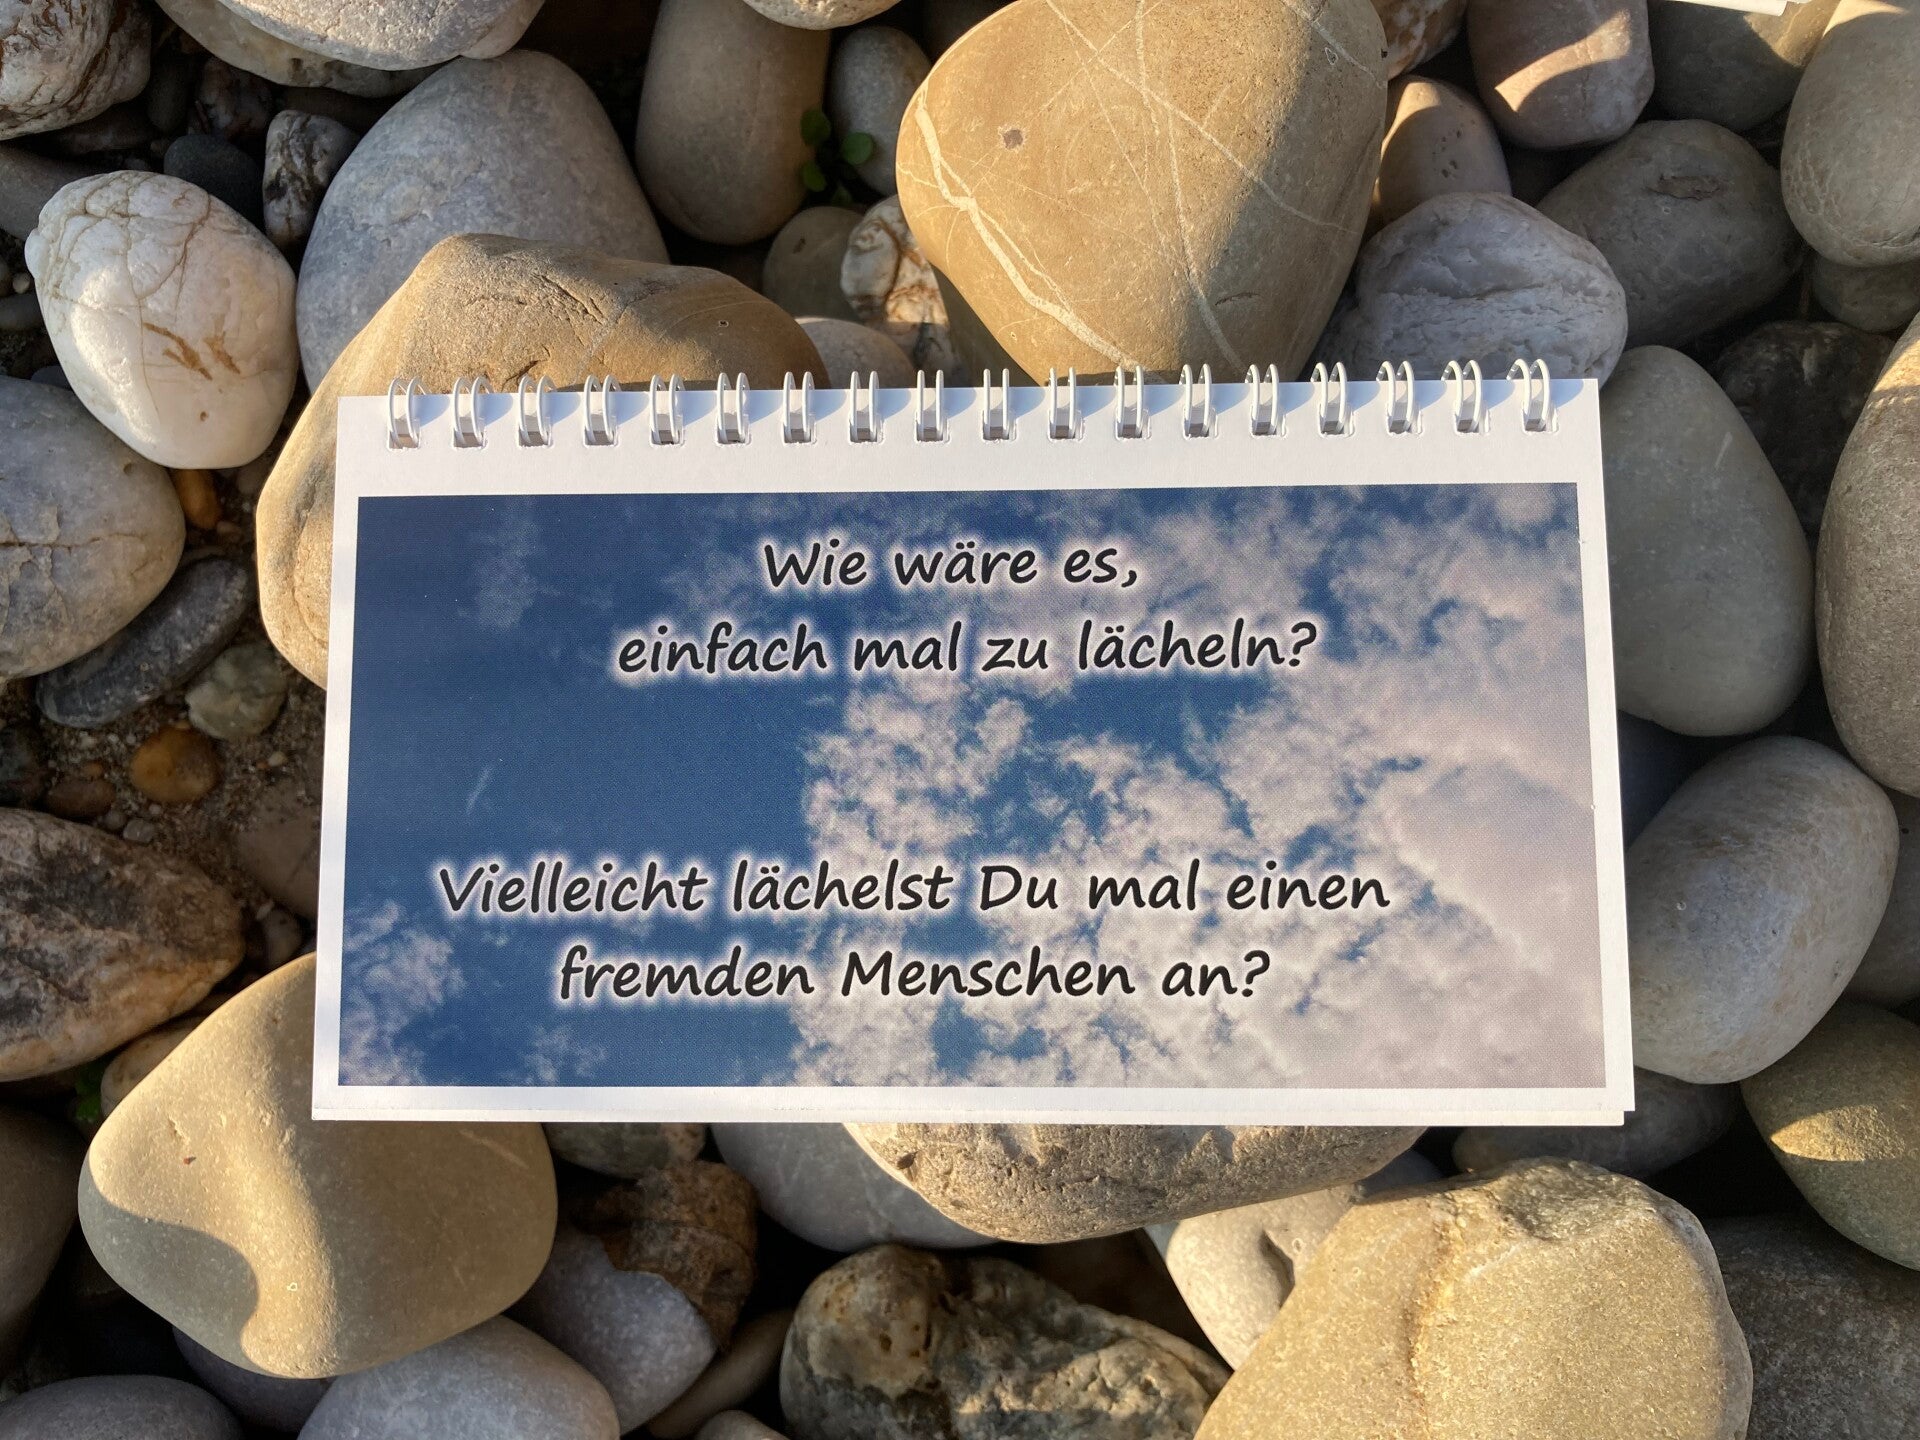 Wie wäre es,
einfach mal zu lächeln?
Vielleicht lächelst Du mal einen
fremden Menschen an?